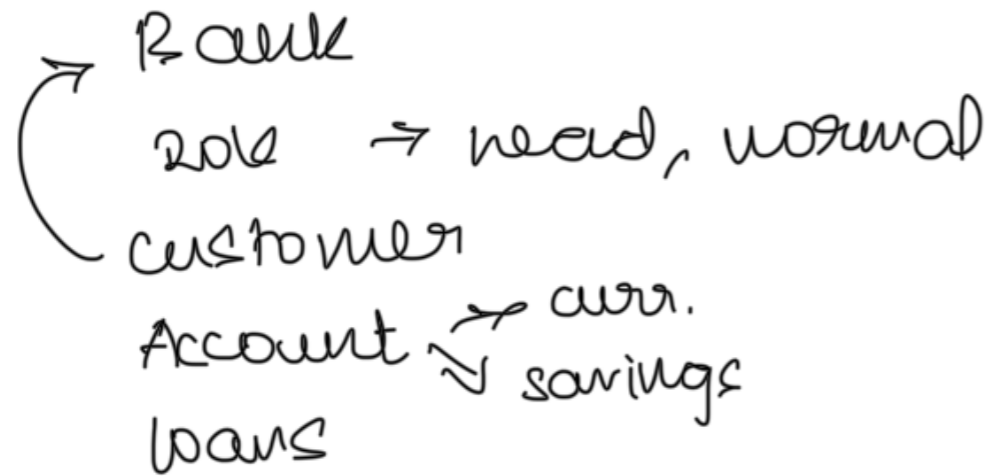 Bank
Role → head, normal
customer
Account → curr.
→ savings
loans